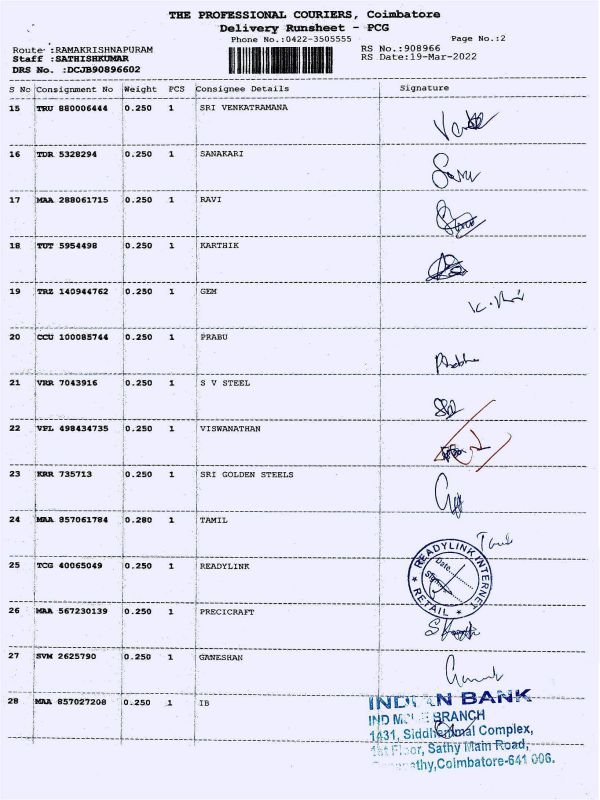 THE PROFESSIONAL COURIERS, Coimbatore
Delivery Runsheet - PCG
Phone No.:0422-3505555
Page No.:2
Route :RAMAKRISHNAPURAM
RS No.:908966
Staff :SATHISHKUMAR
RS Date:19-Mar-2022
DRS No. :DCJB90896602
S No Consignment No Weight PCS Consignee Details Signature
15 TRU 880006444 0.250 1 SRI VENKATRAMANA
16 TDR 5328294 0.250 1 SANAKARI
17 MAA 288061715 0.250 1 RAVI
18 TUT 5954498 0.250 1 KARTHIK
19 TRZ 140944762 0.250 1 GEM
20 CCU 100085744 0.250 1 PRABU
21 VRR 7043916 0.250 1 S V STEEL
22 VPL 498434735 0.250 1 VISWANATHAN
23 KRR 735713 0.250 1 SRI GOLDEN STEELS
24 MAA 857061784 0.280 1 TAMIL
25 TCG 40065049 0.250 1 READYLINK
READYLINK INTERNET
Date
Sign
RETAIL
26 MAA 567230139 0.250 1 PRECICRAFT
27 SVM 2625790 0.250 1 GANESHAN
28 MAA 857027208 0.250 1 IB
INDIAN BANK
IND BRANCH
1431, Complex,
1st Floor, Sathy Main Road,
Coimbatore-641 006.